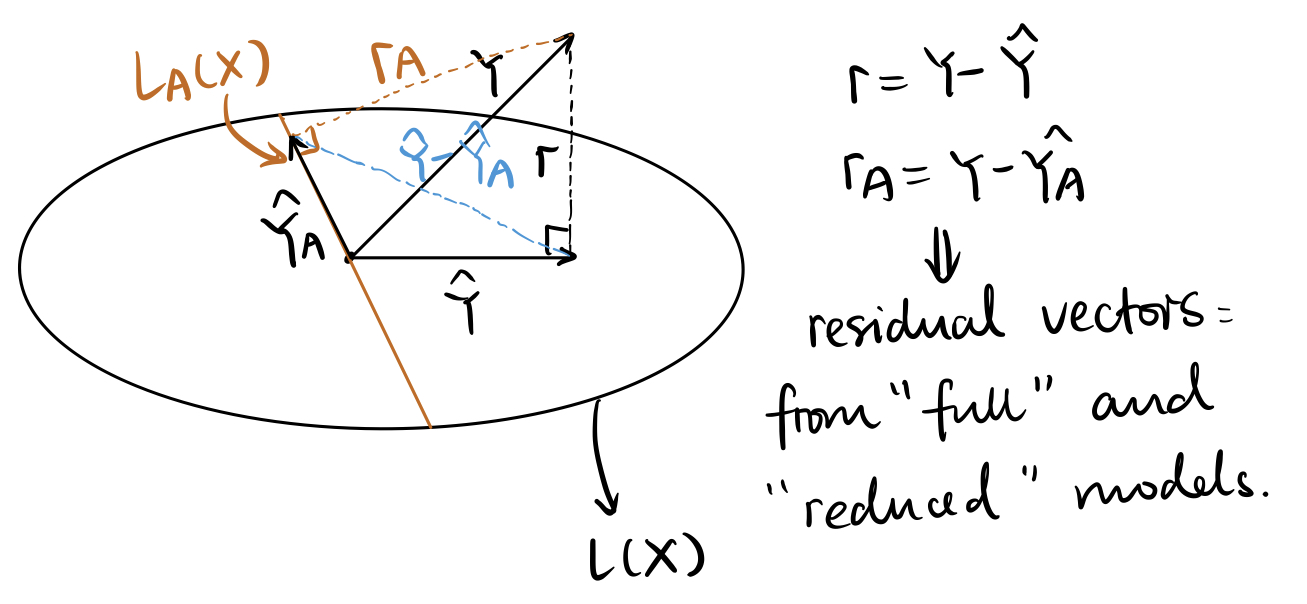 L_A(X)
r_A
Y
Ŷ-Ŷ_A
r
Ŷ_A
Ŷ
L(X)
r = Y - Ŷ
r_A = Y - Ŷ_A
⇓
residual vectors =
from "full" and
"reduced" models.